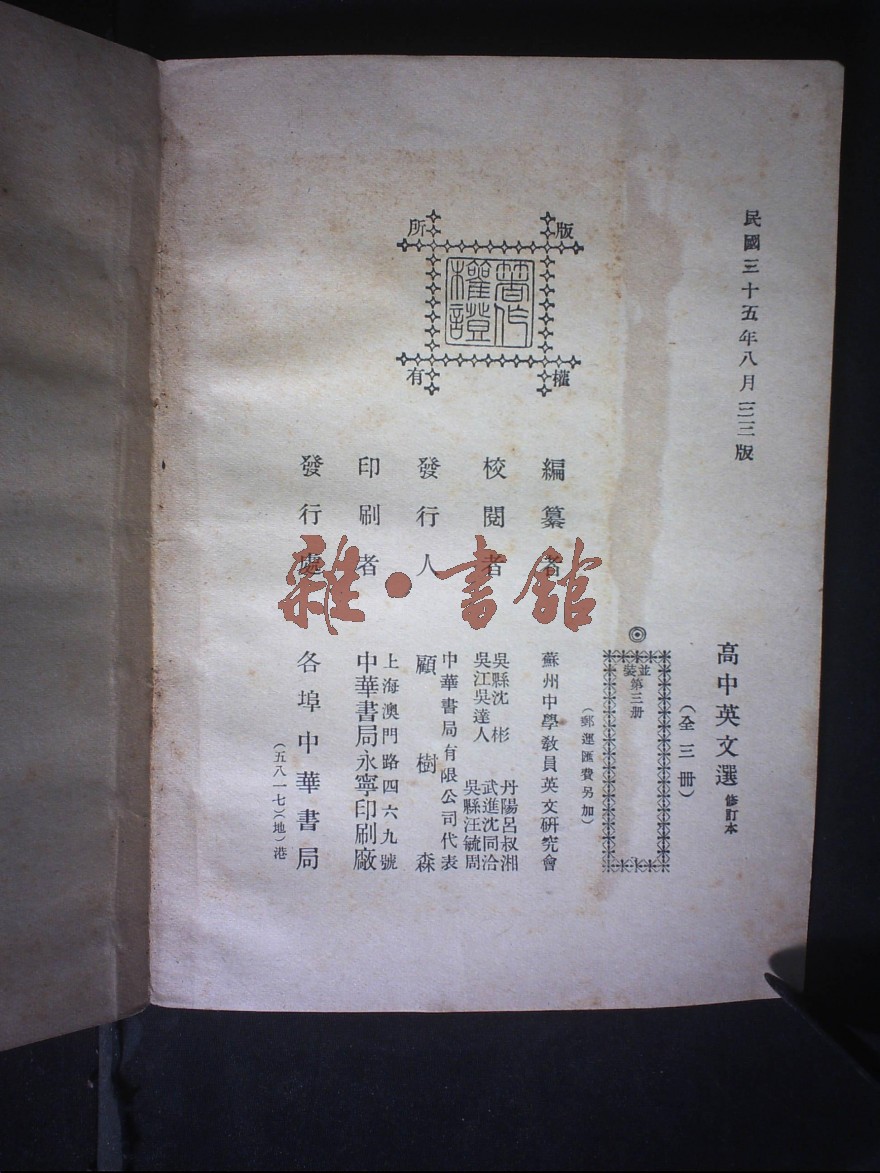 民國三十五年八月三三版
高中英文選 修訂本
(全三冊)
◎
並裝第三册
(郵運匯費另加)
版權所有
著作權證
編纂者 蘇州中學教員英文研究會
校閱者 吳縣沈彬 丹陽呂叔湘
吳江吳達人 武進沈同洽
吳縣汪毓周
發行人 中華書局有限公司代表
顧樹森
印刷者 上海澳門路四六九號
中華書局永寧印刷廠
發行處 各埠中華書局
(五八一七)(地)港
雜·書館